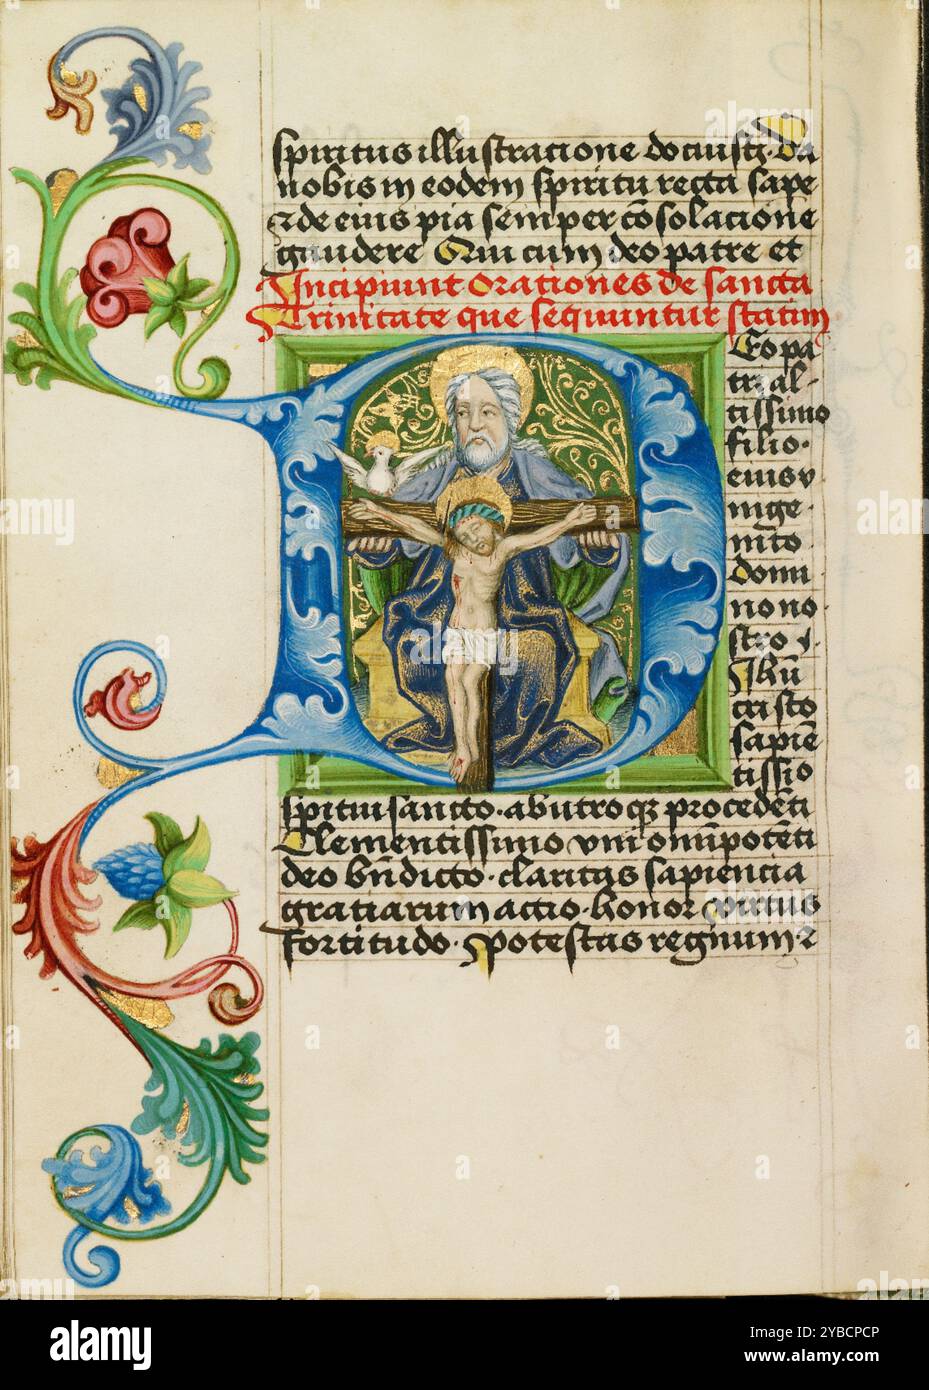 spiritus illustracione docuisti· da
nobis in eodem spiritu recta sape
⁊ de eius pia semper cōsolacione
gaudere Qui cum deo patre et
Incipiunt orationes de sancta
Trinitate que sequuntur statim
D
Eo pa
tri al-
tissimo
filio·
eius v
nige·
nito
domi
no no
stro·
Ihū
cristo
sapiē
tissio
spirituisancto· ab utroqꝫ procedēti
Clementissimo vni omīpotēti
deo bn̄dicto· claritas sapiencia
gratiarum actio· honor virtus
fortitudo· Potestas regnum· ⁊
a
alamy
Image ID: 2YBCPCP
www.alamy.com